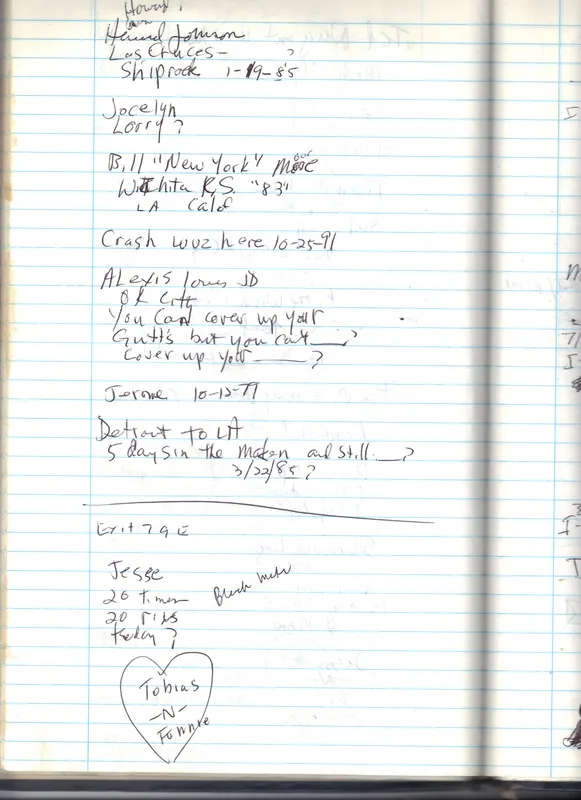 Howard
Johnson
Las Cruces - ?
Shiprock 1-19-85
Jocelyn
Lorry ?
Bill "New York" Moore
Wichita KS. "83"
LA Calif
Crash wuz here 10-25-91
Alexis loves JD
OK City
You Can cover up your
Gutts but you cat ___?
cover up your ___?
Jerome 10-12-77
Detroit to LA
5 days in the maken and still ___?
3/22/85 ?
Exit 79 E
Jesse
20 times
20 rips
today ?
Tobias
-N-
Fonnie